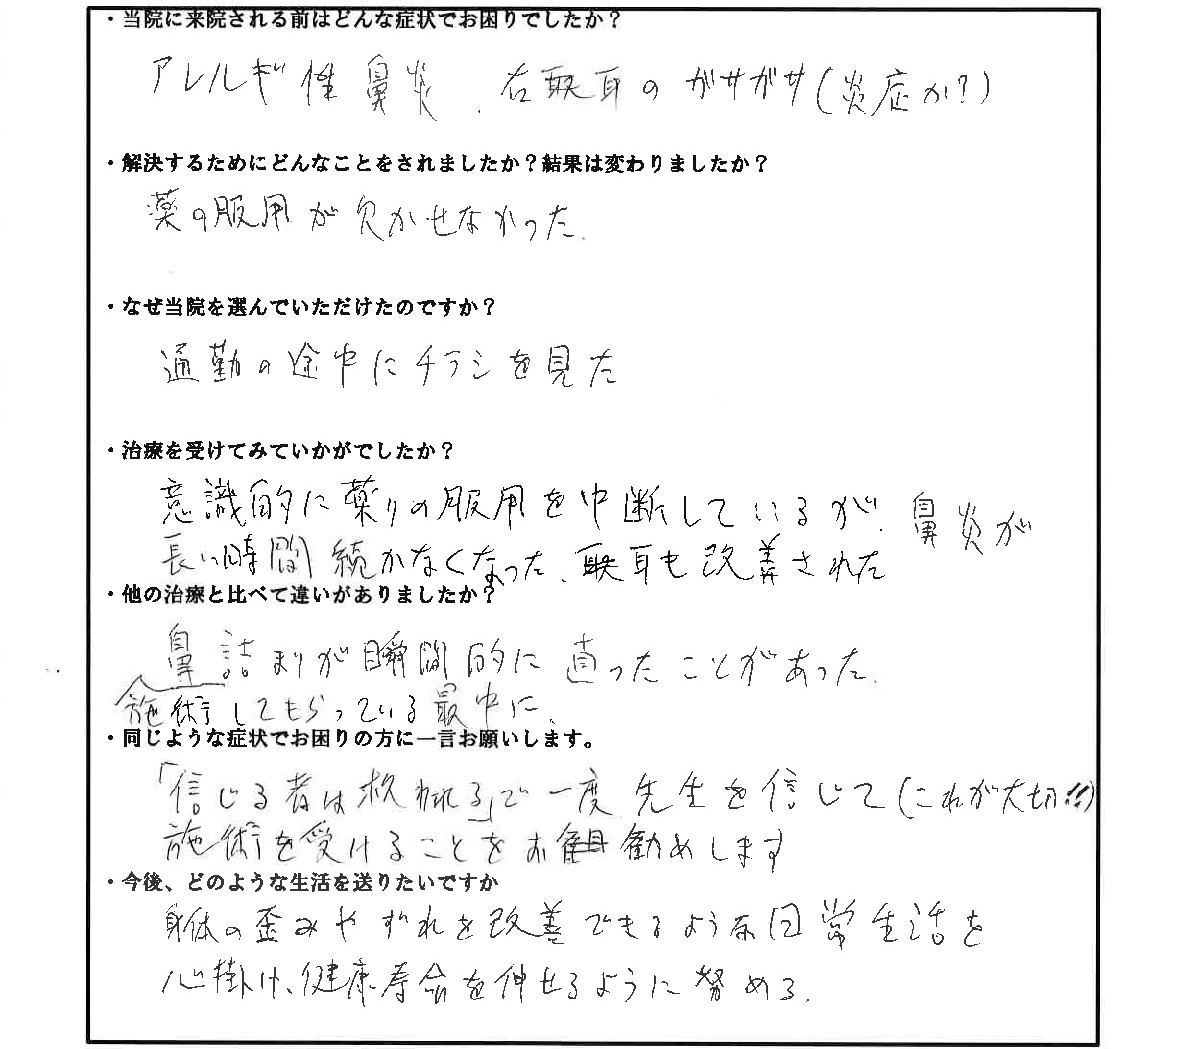 ・当院に来院される前はどんな症状でお困りでしたか？
アレルギ性鼻炎、右耳のガサガサ(炎症か?)
・解決するためにどんなことをされましたか？結果は変わりましたか？
薬の服用が欠かせなかった.
・なぜ当院を選んでいただけたのですか？
通勤の途中にチラシを見た
・治療を受けてみていかがでしたか？
意識的に薬りの服用を中断しているが、鼻炎が
長い時間続かなくなった、耳も改善された
・他の治療と比べて違いがありましたか？
鼻詰まりが瞬間的に直ったことがあった.
施術してもらっている最中に、
・同じような症状でお困りの方に一言お願いします。
「信じる者は救われる」で一度先生を信じて(これが大切!!)
施術を受けることをお勧めします
・今後、どのような生活を送りたいですか
身体の歪みやずれを改善できるような日常生活を
心掛け、健康寿命を伸せるように努める.